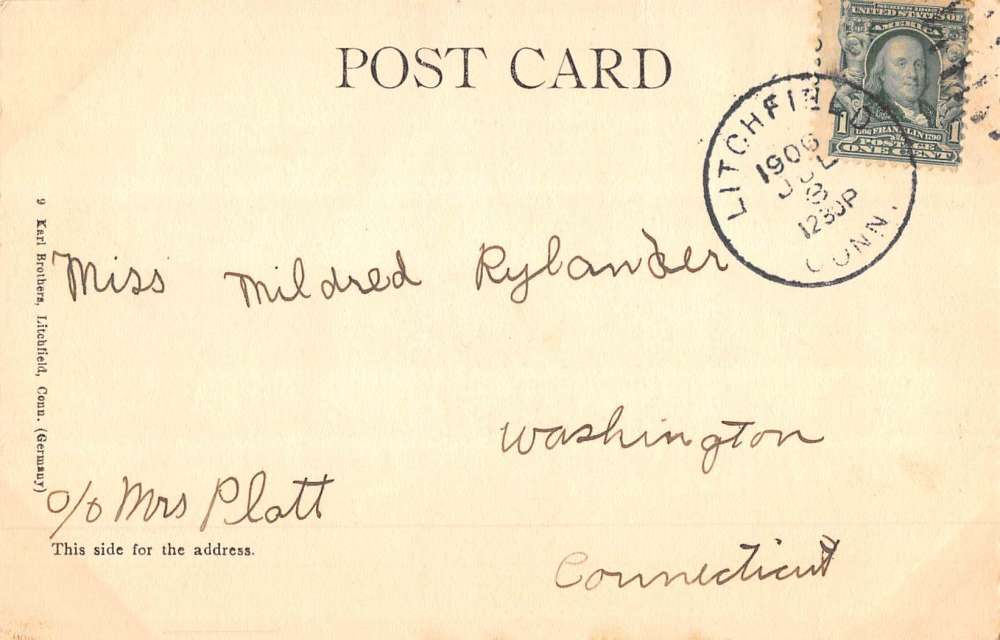 SERIES 1902
UNITED STATES OF
AMERICA
1706 FRANKLIN 1790
POSTAGE
1 ONE CENT 1
POST CARD
LITCHFIELD
1906
JUL
8
1230P
CONN.
Miss Mildred Rylander
Washington
o/o Mrs Platt
Connecticut
This side for the address.
9 Karl Brothers, Litchfield, Conn. (Germany)